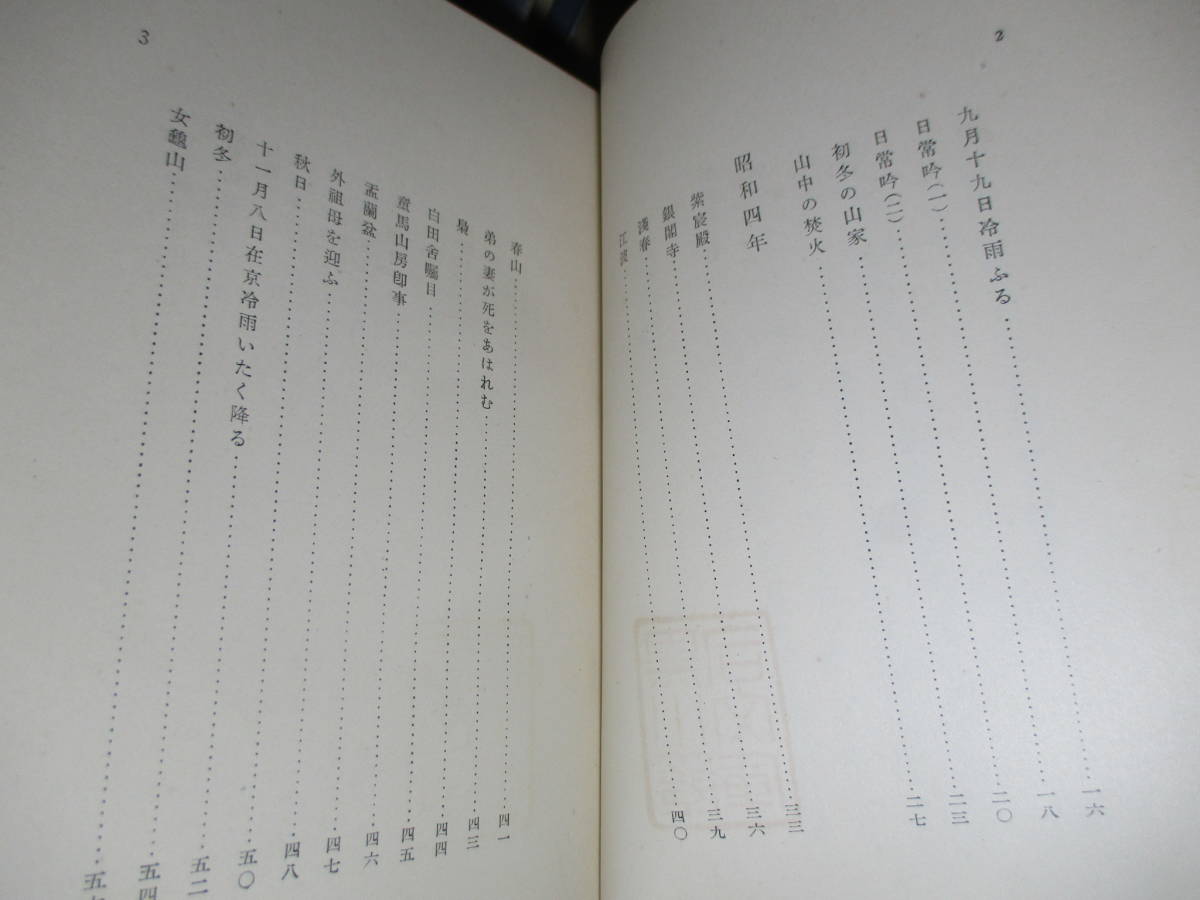 2
九月十九日冷雨ふる……一六
日常吟(一)……一八
日常吟(二)……二〇
初冬の山家……二三
山中の焚火……二七
昭和四年
紫宸殿……三三
銀閣寺……三六
淺春……三九
……四〇
3
春山……四一
弟の妻が死をあはれむ……四三
梟……四四
白田舍囑目……四五
童馬山房卽事……四六
盂蘭盆……四七
外祖母を迎ふ……四八
秋日……五〇
十一月八日在京冷雨いたく降る……五二
初冬……五四